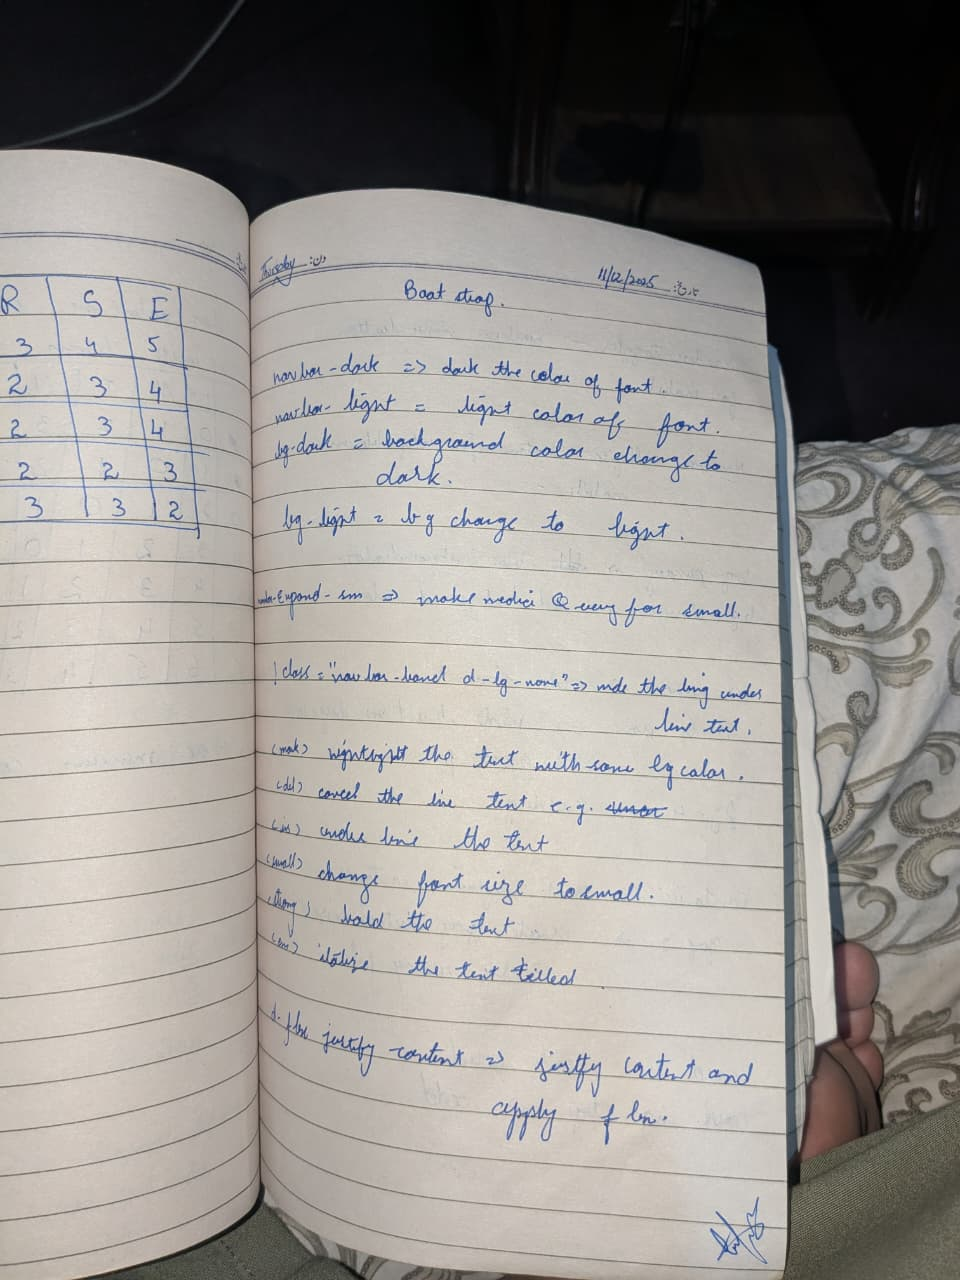 R S E
3 4 5
2 3 4
2 3 4
2 2 3
3 3 2
Thursday دن:
11/12/2025 تاریخ:
Boat strap.
navbar-dark => dark the color of font.
navbar-light = light color of font.
bg-dark = background color change to
dark.
bg-light = bg change to light.
Expand-sm => make media Query for small.
class="navbar-band d-lg-none" => the long under
line text.
(mark) the text with some bg color.
(del) cancel the line text e.g.
(ins) under line the text
(small) change font size to small.
(strong) bold the text
(em) the text tilled
d-flex justify content => justify content and
apply flex.